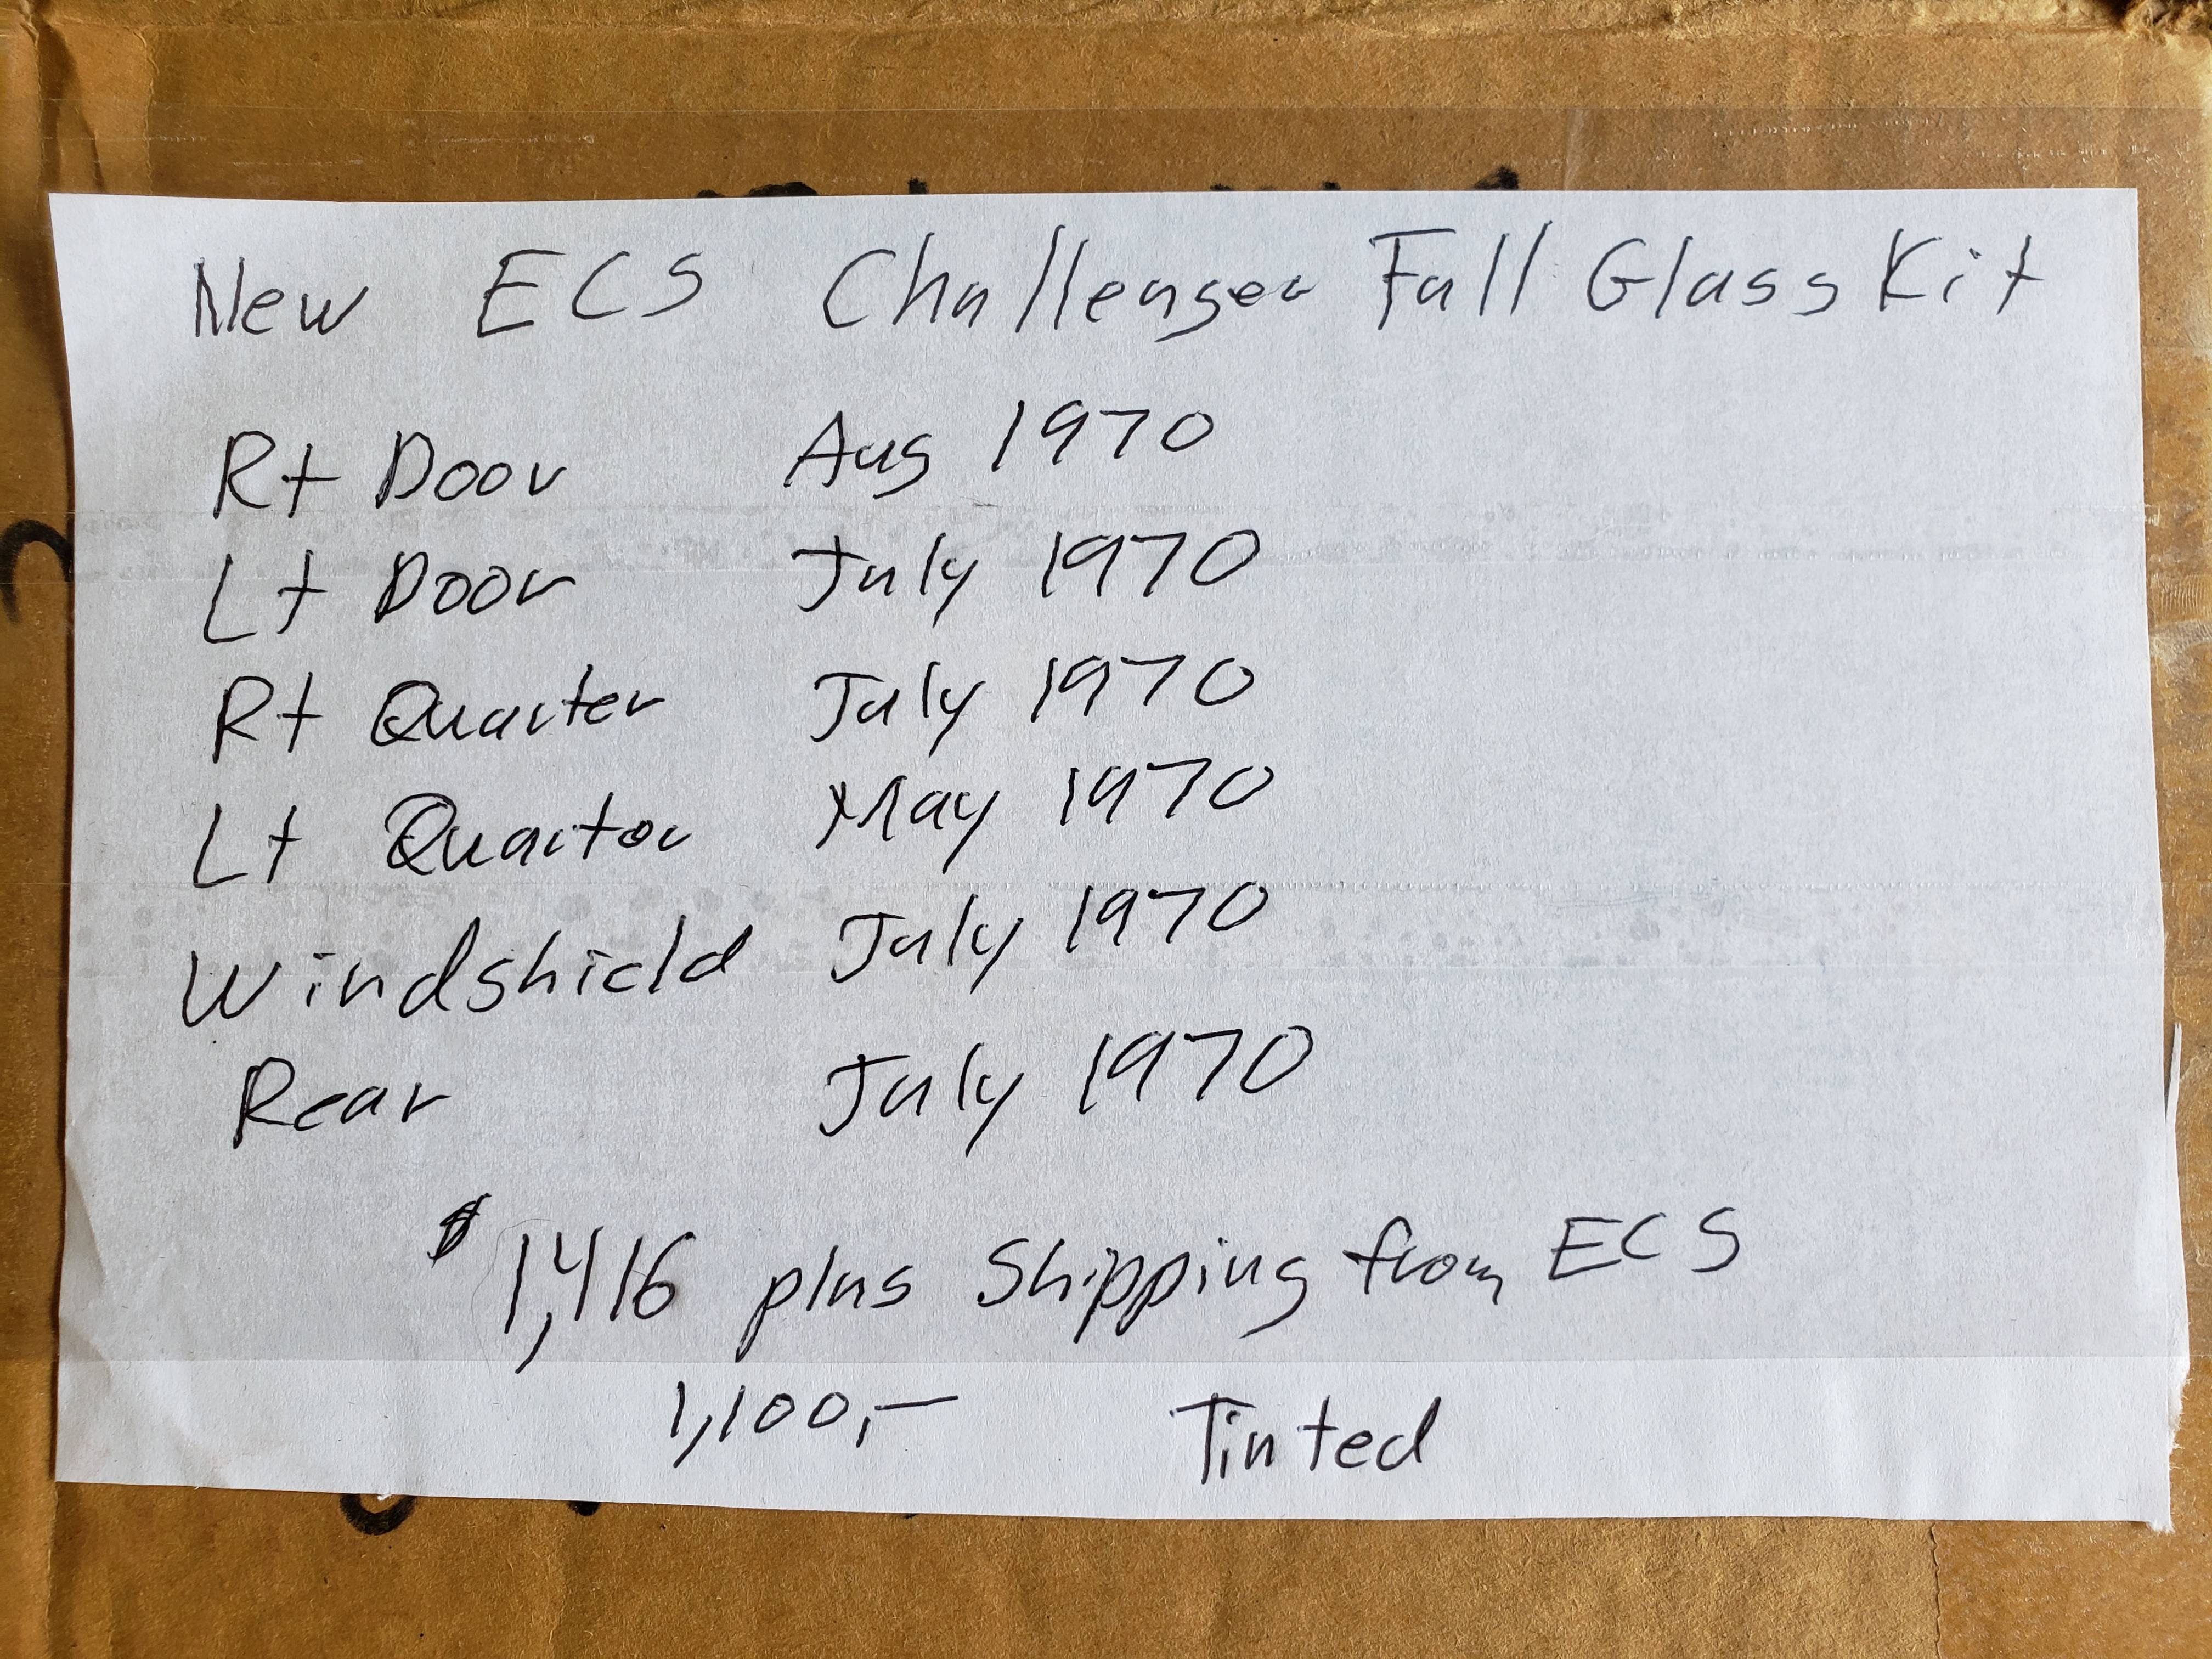 New ECS Challenger Full Glass Kit
Rt Door Aug 1970
Lt Door July 1970
Rt Quarter July 1970
Lt Quarter May 1970
Windshield July 1970
Rear July 1970
$1,416 plus Shipping from ECS
1,100,— Tinted